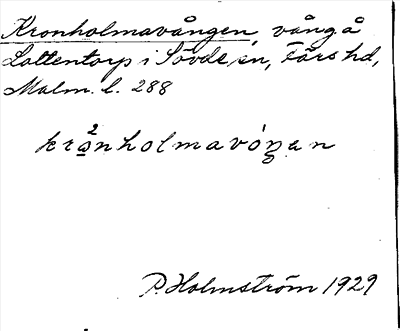 Kronholmavången, vång å
Lottentorp i Sövde sn, Färs hd,
Malm. l. 288
krånholmavóŋan
P. Holmström 1929